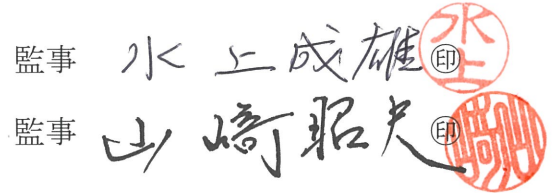 監事 水上成雄 ㊞ 水上
監事 山﨑昭夫 ㊞